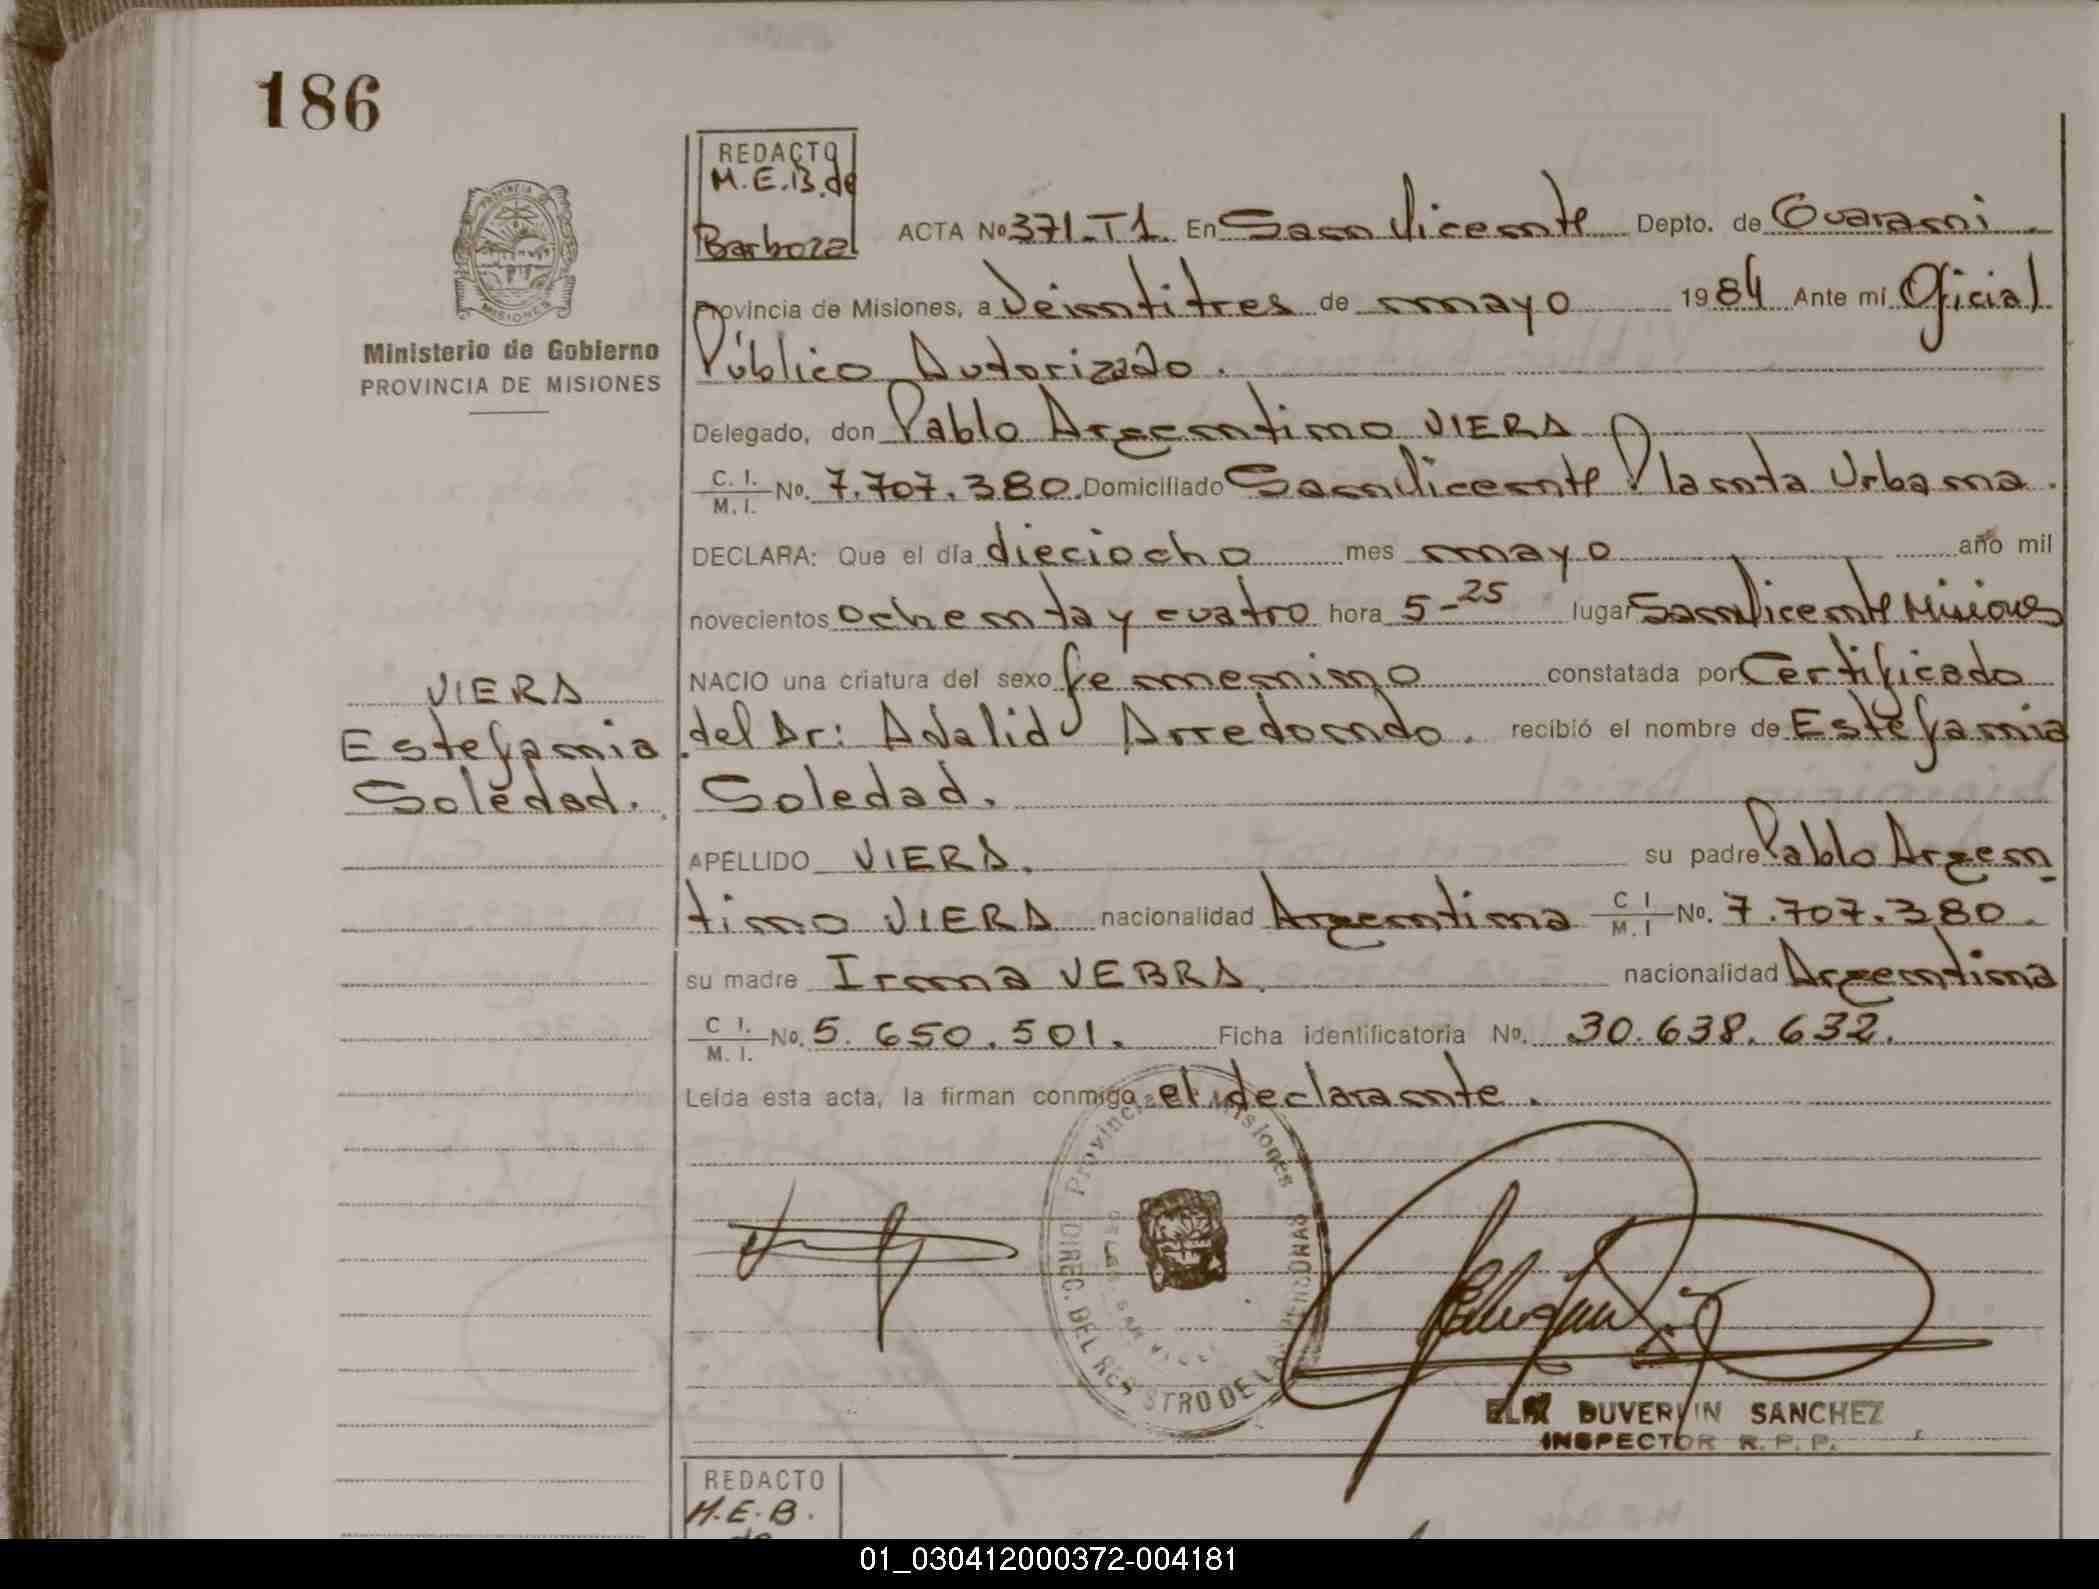 186
REDACTO
M.E.B. de
Barboza
ACTA No 371-T1. En San Vicente Depto. de Guaraní.
PROVINCIA
MISIONES
Provincia de Misiones, a Veintitres de mayo 1984 Ante mí Oficial
Ministerio de Gobierno
PROVINCIA DE MISIONES
Público Autorizado.
Delegado, don Pablo Argentino VIERA
C. I. No. 7.707.380. Domiciliado San Vicente Planta Urbana.
M. I.
DECLARA: Que el día dieciocho mes mayo año mil
novecientos ochenta y cuatro hora 5-25 lugar San Vicente Misiones
NACIO una criatura del sexo femenino constatada por Certificado
VIERA
Estefania
Soledad.
del Dr: Adalid Arredondo. recibió el nombre de Estefania
Soledad.
APELLIDO VIERA. su padre Pablo Argen
tino VIERA nacionalidad Argentina C I No. 7.707.380.
M. I
su madre Irma VEBRA. nacionalidad Argentina
C I. No. 5.650.501. Ficha identificatoria No. 30.638.632.
M. I.
Leída esta acta, la firman conmigo el declarante.
Provincia Misiones
DIREC. DEL REGISTRO DE LAS PERSONAS
DUVERLIN SANCHEZ
INSPECTOR R. P. P.
REDACTO
M.E.B.
de
01_030412000372-004181